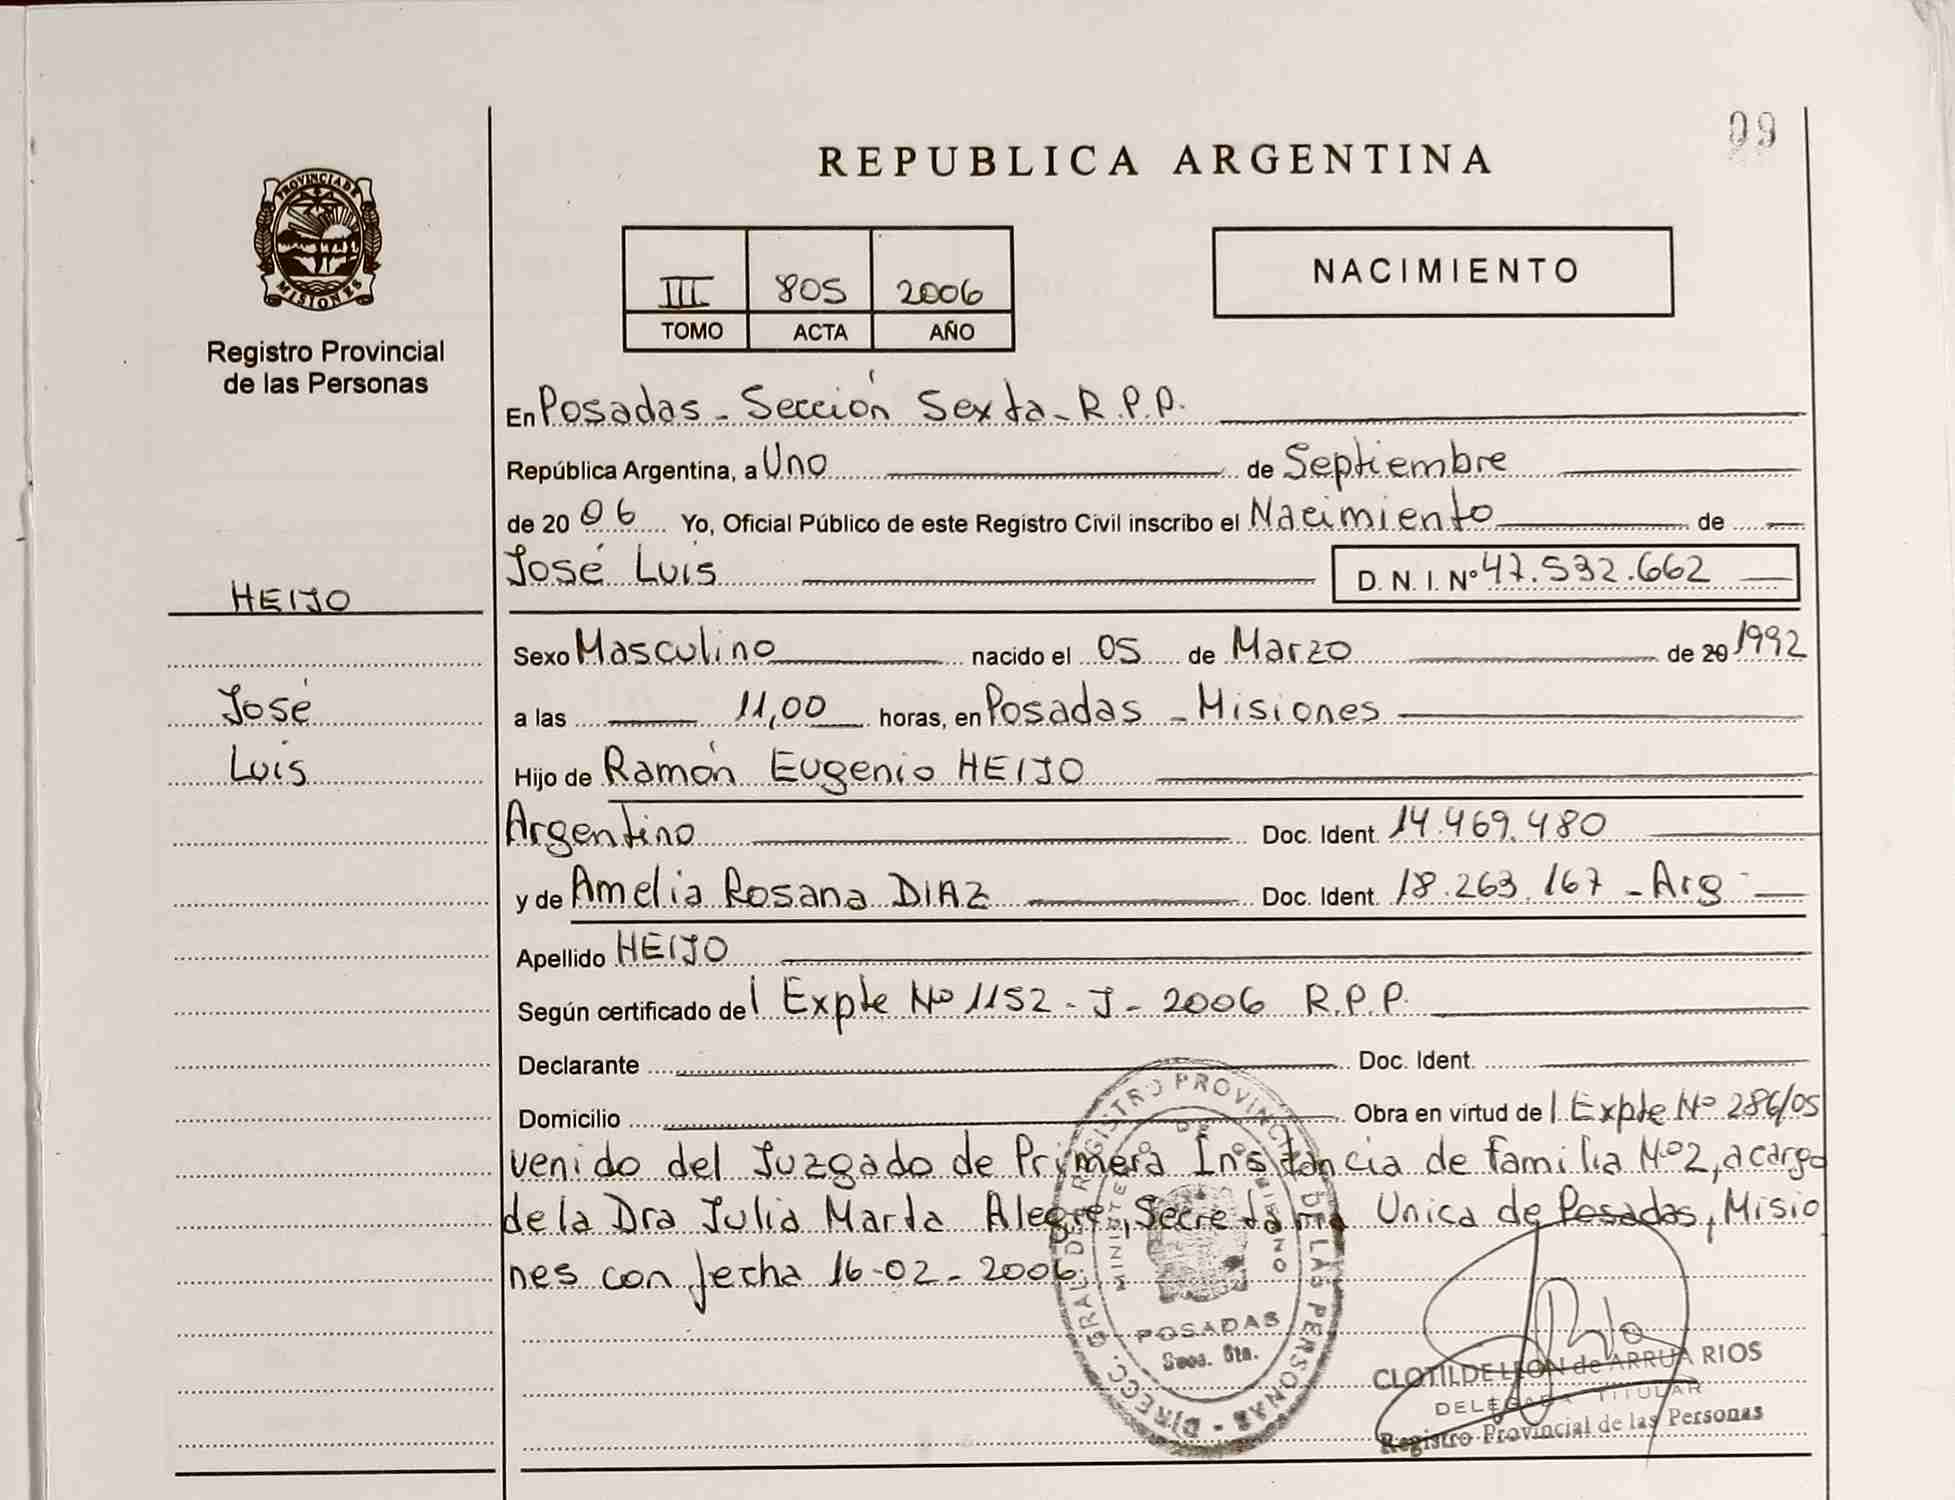 09
REPUBLICA ARGENTINA
PROVINCIA DE
MISIONES
Registro Provincial
de las Personas
III 805 2006
TOMO ACTA AÑO
NACIMIENTO
En Posadas - Sección Sexta - R.P.P.
República Argentina, a Uno de Septiembre
de 20 06 Yo, Oficial Público de este Registro Civil inscribo el Nacimiento de
José Luis D. N. I. Nº 47.532.662
HEIJO
Sexo Masculino nacido el 05 de Marzo de 20 1992
José
a las 11,00 horas, en Posadas - Misiones
Luis
Hijo de Ramón Eugenio HEIJO
Argentino Doc. Ident. 14.469.480
y de Amelia Rosana DIAZ Doc. Ident. 18.263.167 - Arg
Apellido HEIJO
Según certificado del Expte Nº 1152 - J - 2006 R.P.P.
Declarante Doc. Ident.
Domicilio Obra en virtud del Expte Nº 286/05
venido del Juzgado de Primera Instancia de familia Nº 2, a cargo
de la Dra Julia Marta Alegre, Secretaria Unica de Posadas, Misio
nes con fecha 16-02-2006.
DIRECC. GRAL. DE REGISTRO PROVINCIAL DE LAS PERSONAS
MINISTERIO DE GOBIERNO
POSADAS
Secc. 6ta.
CLOTILDE LEON de ARRUA RIOS
DELEGADA TITULAR
Registro Provincial de las Personas